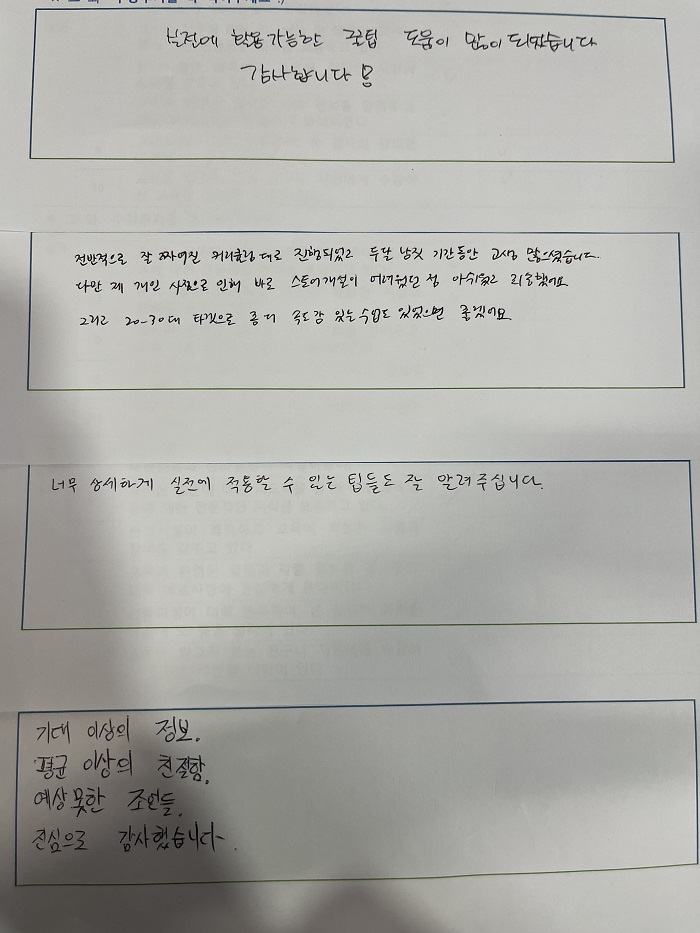 실전에 활용가능한 꿀팁 도움이 많이 되었습니다
감사합니다!
전반적으로 잘 짜여진 커리큘럼대로 진행되었고 두달 남짓 기간동안 고생 많으셨습니다.
다만 제 개인 사정으로 인해 바로 스토어개설이 어려웠던 점 아쉬웠고 죄송했어요.
그리고 20-30대 타겟으로 좀 더 속도감 있는 수업도 있었으면 좋겠어요.
너무 상세하게 실전에 적용할 수 있는 팁들도 잘 알려주십니다.
기대 이상의 정보.
평균 이상의 친절함.
예상 못한 조언들.
진심으로 감사했습니다~.